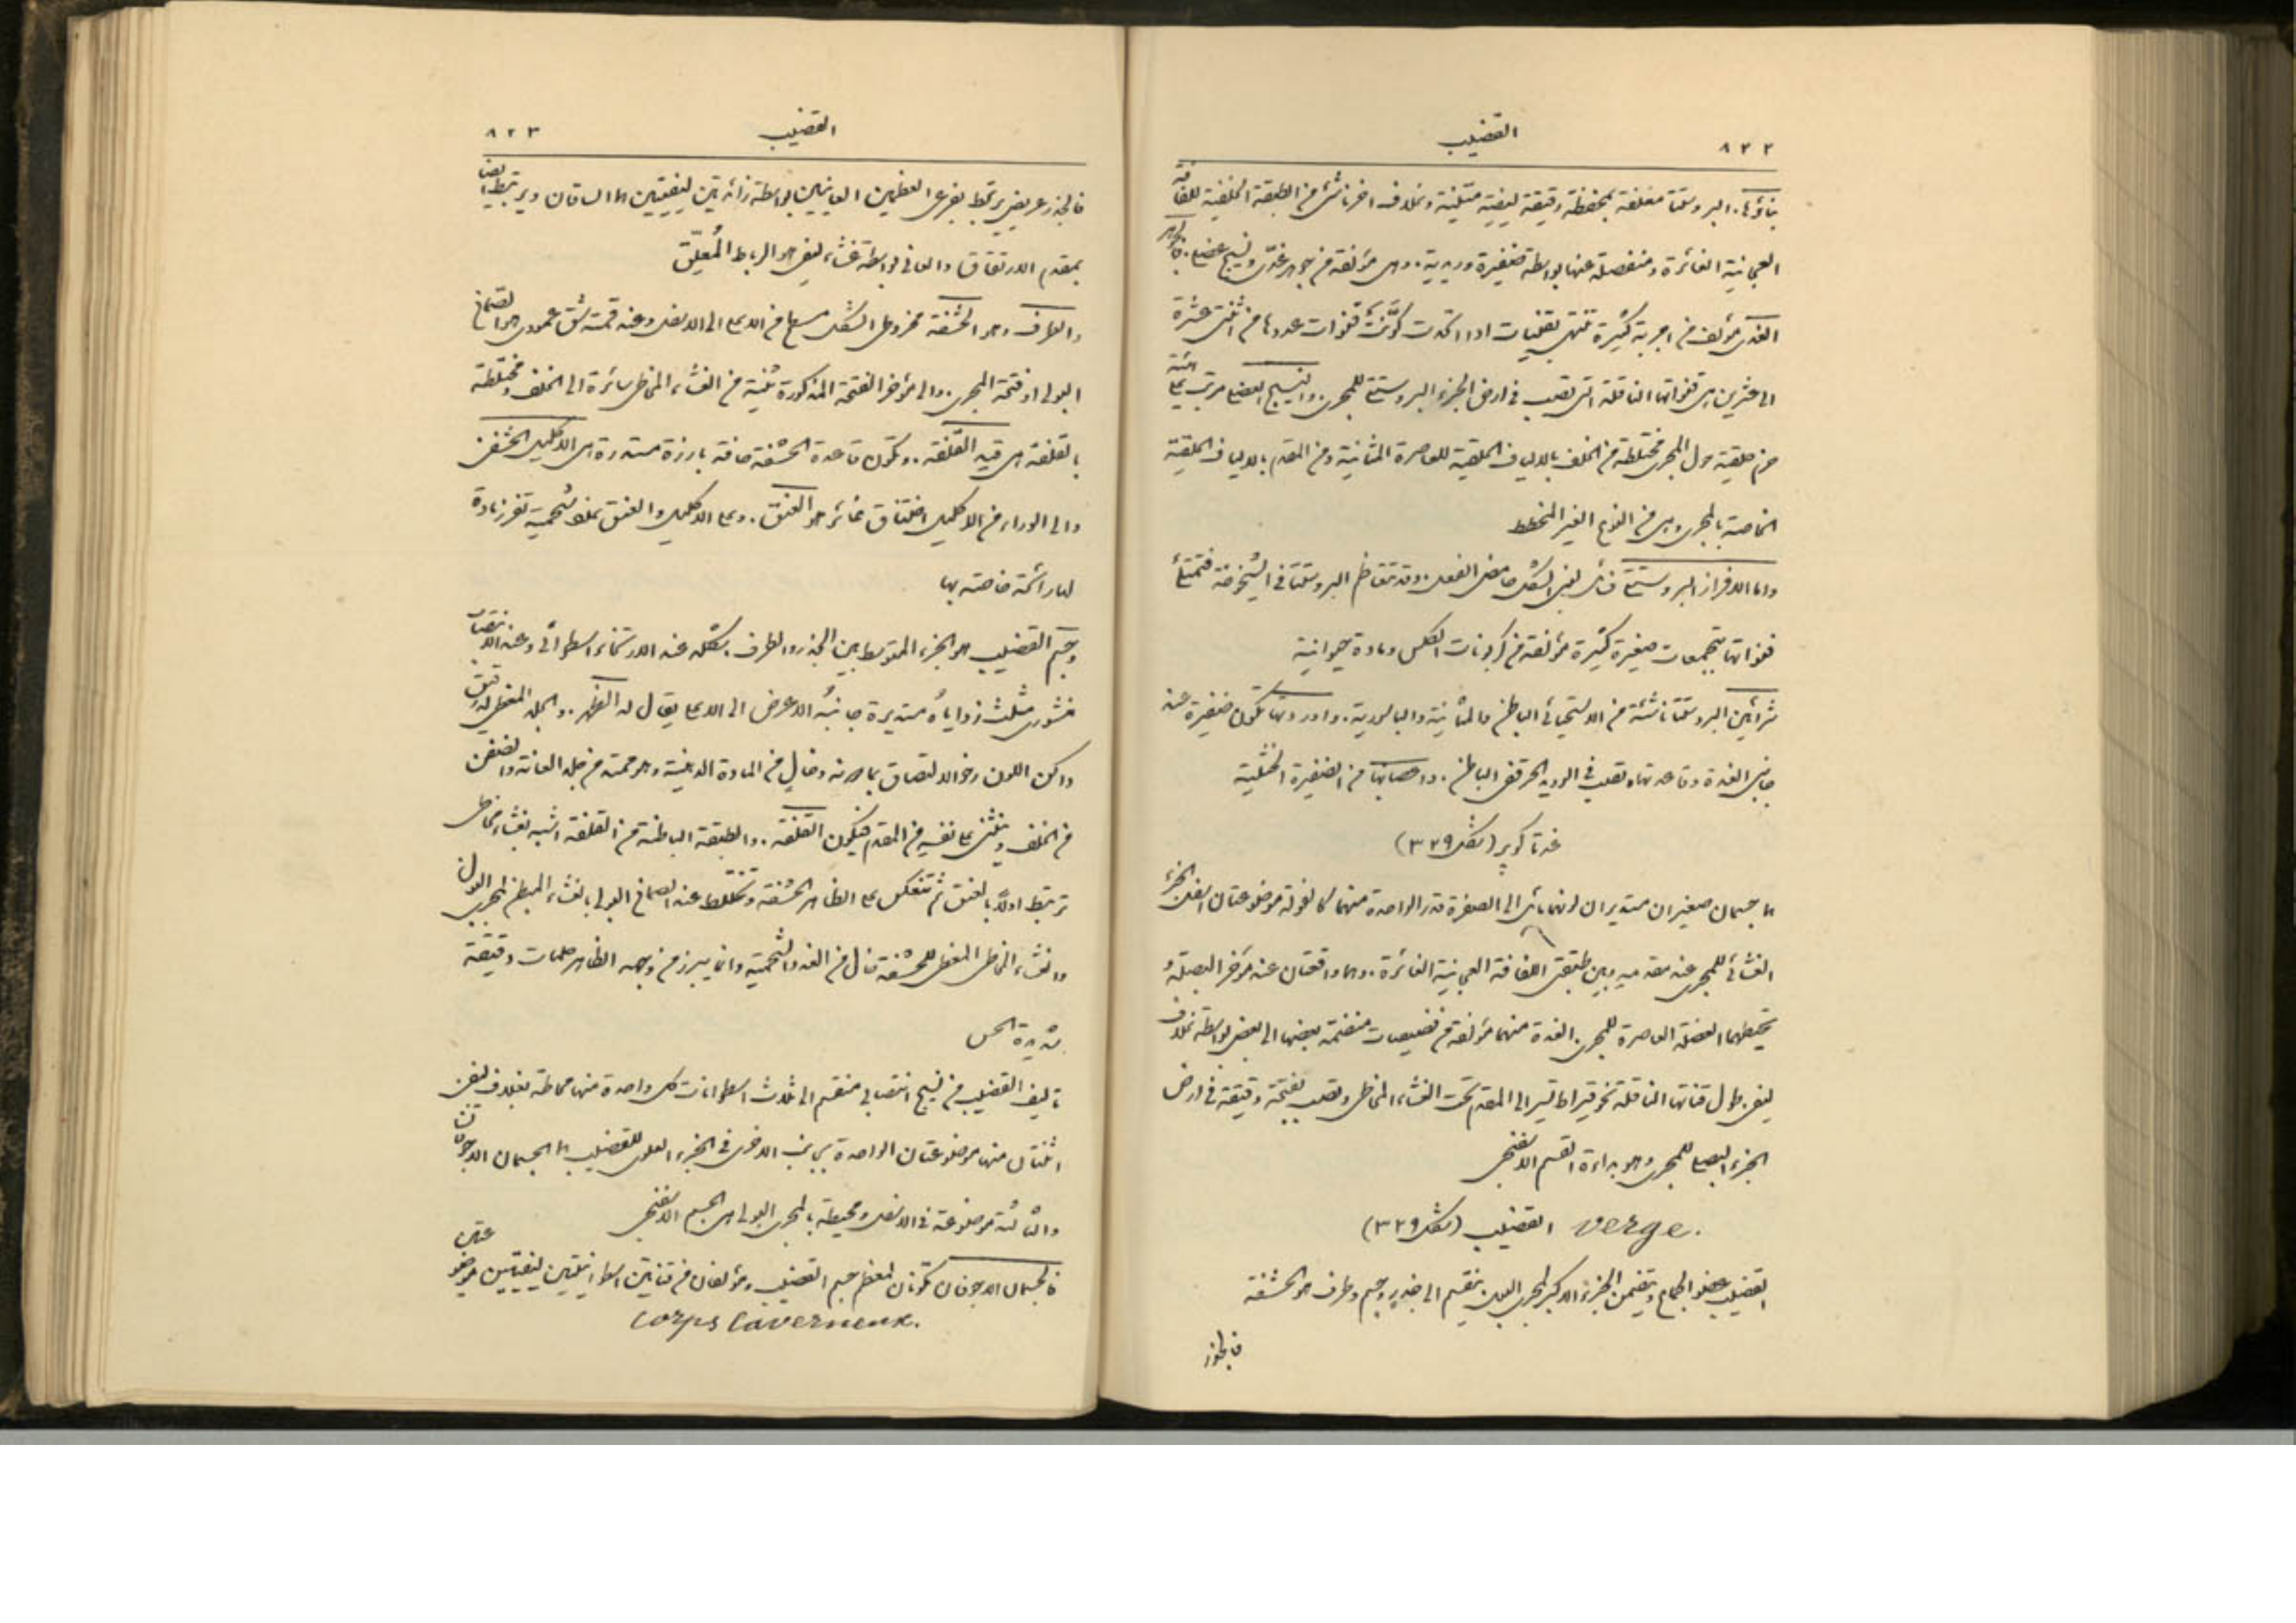 ٨٢٢ القضيب
بناؤها. البروستتا مغلفة بمحفظة رقيقة ليفية متينة وبغلاف اخر ناشئ من الطبقة الخلفية للفافة
العجانية الغائرة ومنفصلة عنها بواسطة ضفيرة وريدية. وهي مؤلفة من جوهر غدّي ونسيج عضلي. فالجوهر
الغدي مؤلف من اجربة كثيرة تنتهي بقنيات اذا اتحدت كوّنت قنوات عددها من اثنتي عشرة
الى عشرين هي قنواتها الناقلة التي تصب في ارض الجزء البروستتي للمجرى. والنسيج العضلي مرتب على هيئة
حزم حلقية حول المجرى مختلطة من الخلف بالالياف الحلقية للعاصرة المثانية ومن المقدم بالالياف الحلقية
الخاصة بالمجرى وهي من النوع الغير المخطط
واما الافراز البروستتي فسائل لبني الشكل حامض الفعل. وقد تتعاظم البروستتا في الشيخوخة فتمتلئ
قنواتها بتجمعات صغيرة كثيرة مؤلفة من كربونات الكلس ومادة حيوانية
شرائين البروستتا ناشئة من الاستحيائي الباطن والمثانية والباسورية. واوردتها تكوّن ضفيرة عند
جانبي الغدة وقاعدتها تصب في الوريد الحرقفي الباطن. واعصابها من الضفيرة الخثلية
غدتا كوپر (شكل ٣٢٩)
هما جسمان صغيران مستديران لونهما مائل الى الصفرة قدر الواحدة منهما كالفولة موضوعتان اسفل الجزء
الغشائي للمجرى عند مقدمه بين طبقتي اللفافة العجانية الغائرة. وهما واقعتان عند مؤخر البصلة و
تحيطهما العضلة العاصرة للمجرى. الغدة منهما مؤلفة من فصيصات منضمة بعضها الى بعض بواسطة غلاف
ليفي. طول قناتها الناقلة نحو قيراط تسير الى المقدم تحت الغشاء المخاطي وتصب بفتحة دقيقة في ارض
الجزء البصلي للمجرى وهو بداءة القسم الاسفنجي
القضيب verge. (شكل ٣٢٩)
القضيب عضو الجماع ويتضمن الجزء الاكبر لمجرى البول ينقسم الى جذر وجسم وطرف هو الحشفة
فالجذر
القضيب ٨٢٣
فالجذر عريض يرتبط بفرعي العظمين العانيين بواسطة زائدتين ليفيتين هما الساقان ويرتبط ايضا
بمقدم الارتفاق العاني بواسطة غشاء ليفي هو الرباط المُعلِّق
والطرف وهو الحشفة مخروطي الشكل مسطح من الاعلى الى الاسفل وعند قمته شق عمودي هو الصماخ
البولي او فتحة المجرى. والى مؤخر الفتحة المذكورة ثنية من الغشاء المخاطي سائرة الى الخلف ومختلطة
بالقلفة هي قيد القلفة. وتكوّن قاعدة الحشفة حافة بارزة مستديرة هي الاكليل الحشفي
والى الوراء من الاكليل اختناق غائر هو العنق. وعلى الاكليل والعنق غدد شحمية تفرز مادة
لها رائحة خاصة بها
وجسم القضيب هو الجزء المتوسط بين الجذر والطرف. شكله عند الارتخاء اسطواني وعند الانتصاب
منشوري مثلث زواياه مستديرة جانبه الاعرض الى الاعلى يقال له الظهر. والجلد المغطي له رقيق
داكن اللون رخو الالتصاق بما دونه وخالٍ من المادة الدهنية وهو ممتد من جلد العانة والصفن
من الخلف وينثني على نفسه من المقدم فيكوّن القلفة. والطبقة الباطنة من القلفة اشبه بغشاء مخاطي
ترتبط اولاً بالعنق ثم تنعكس على الظاهر الحشفة وتختلط عند الصماخ البولي بالغشاء المبطن لمجرى البول
والغشاء المخاطي المغطي للحشفة خال من الغدد الشحمية وانما يبرز من وجهه الظاهر حلمات دقيقة
شديدة الحس
تأليف القضيب من نسيج انتصابي منقسم الى ثلاث اسطوانات كل واحدة منها محاطة بغلاف ليفي
اثنتان منها موضوعتان الواحدة بجانب الاخرى في الجزء العلوي للقضيب هما الجسمان الاجوفان
والثالثة موضوعة في الاسفل ومحيطة بالمجرى البولي هي الجسم الاسفنجي
فالجسمان الاجوفان يكوّنان معظم جسم القضيب ومؤلفان من قناتين اسطوانيتين ليفيتين موضوعتين
Corps Caverneux.